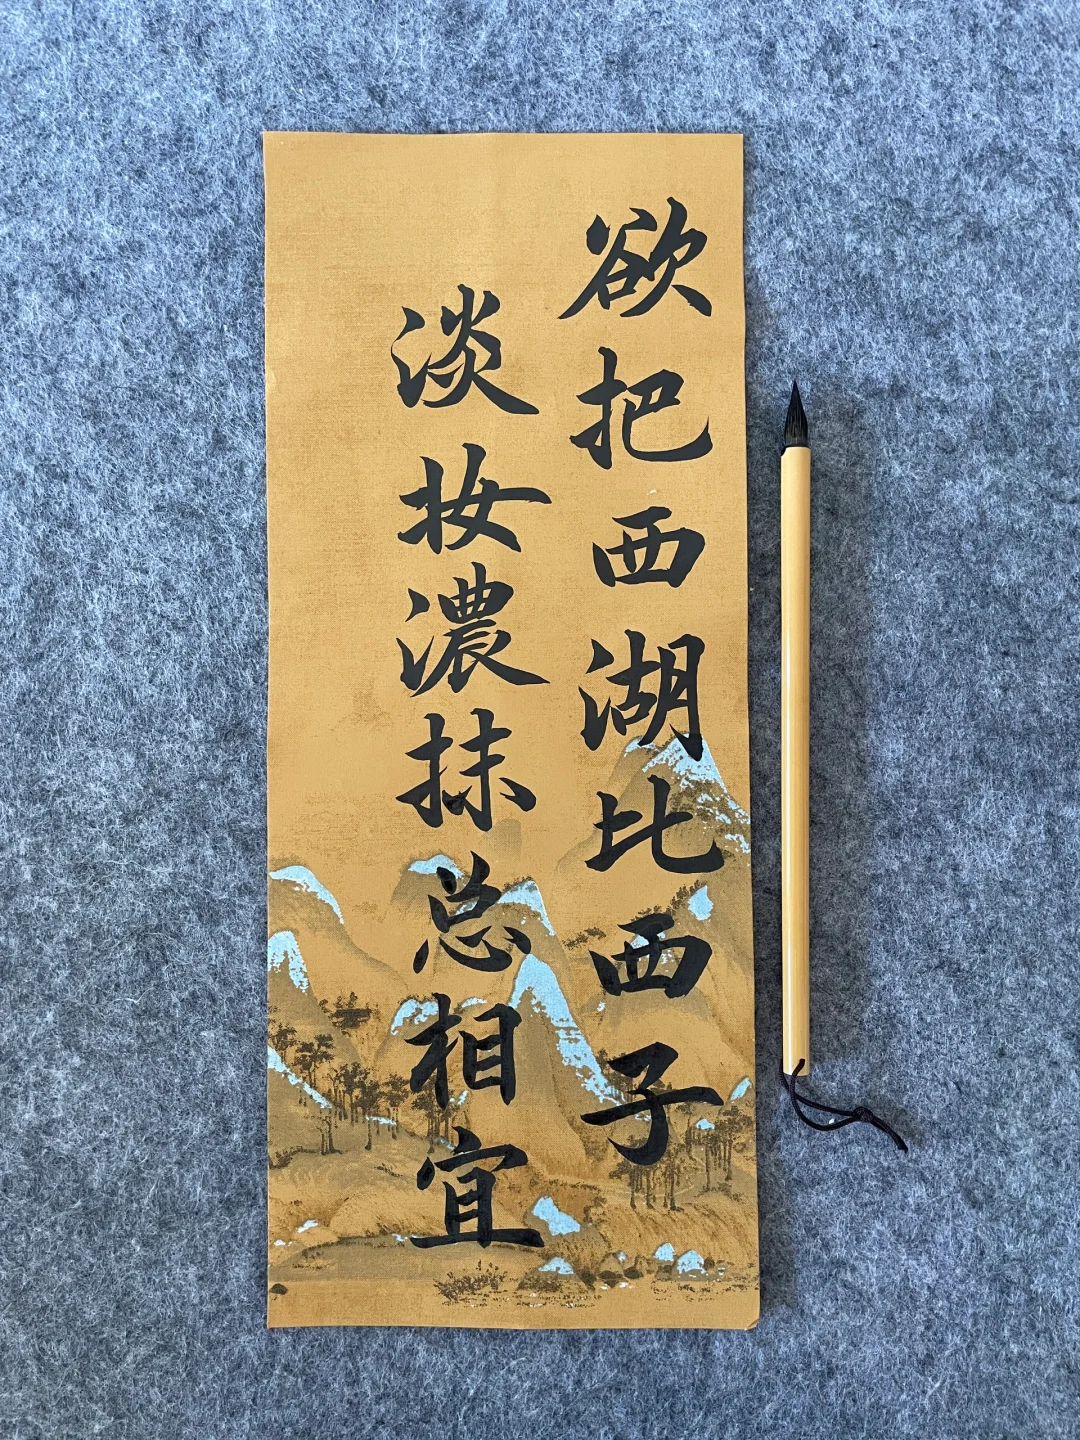 欲把西湖比西子
淡妆濃抹总相宜